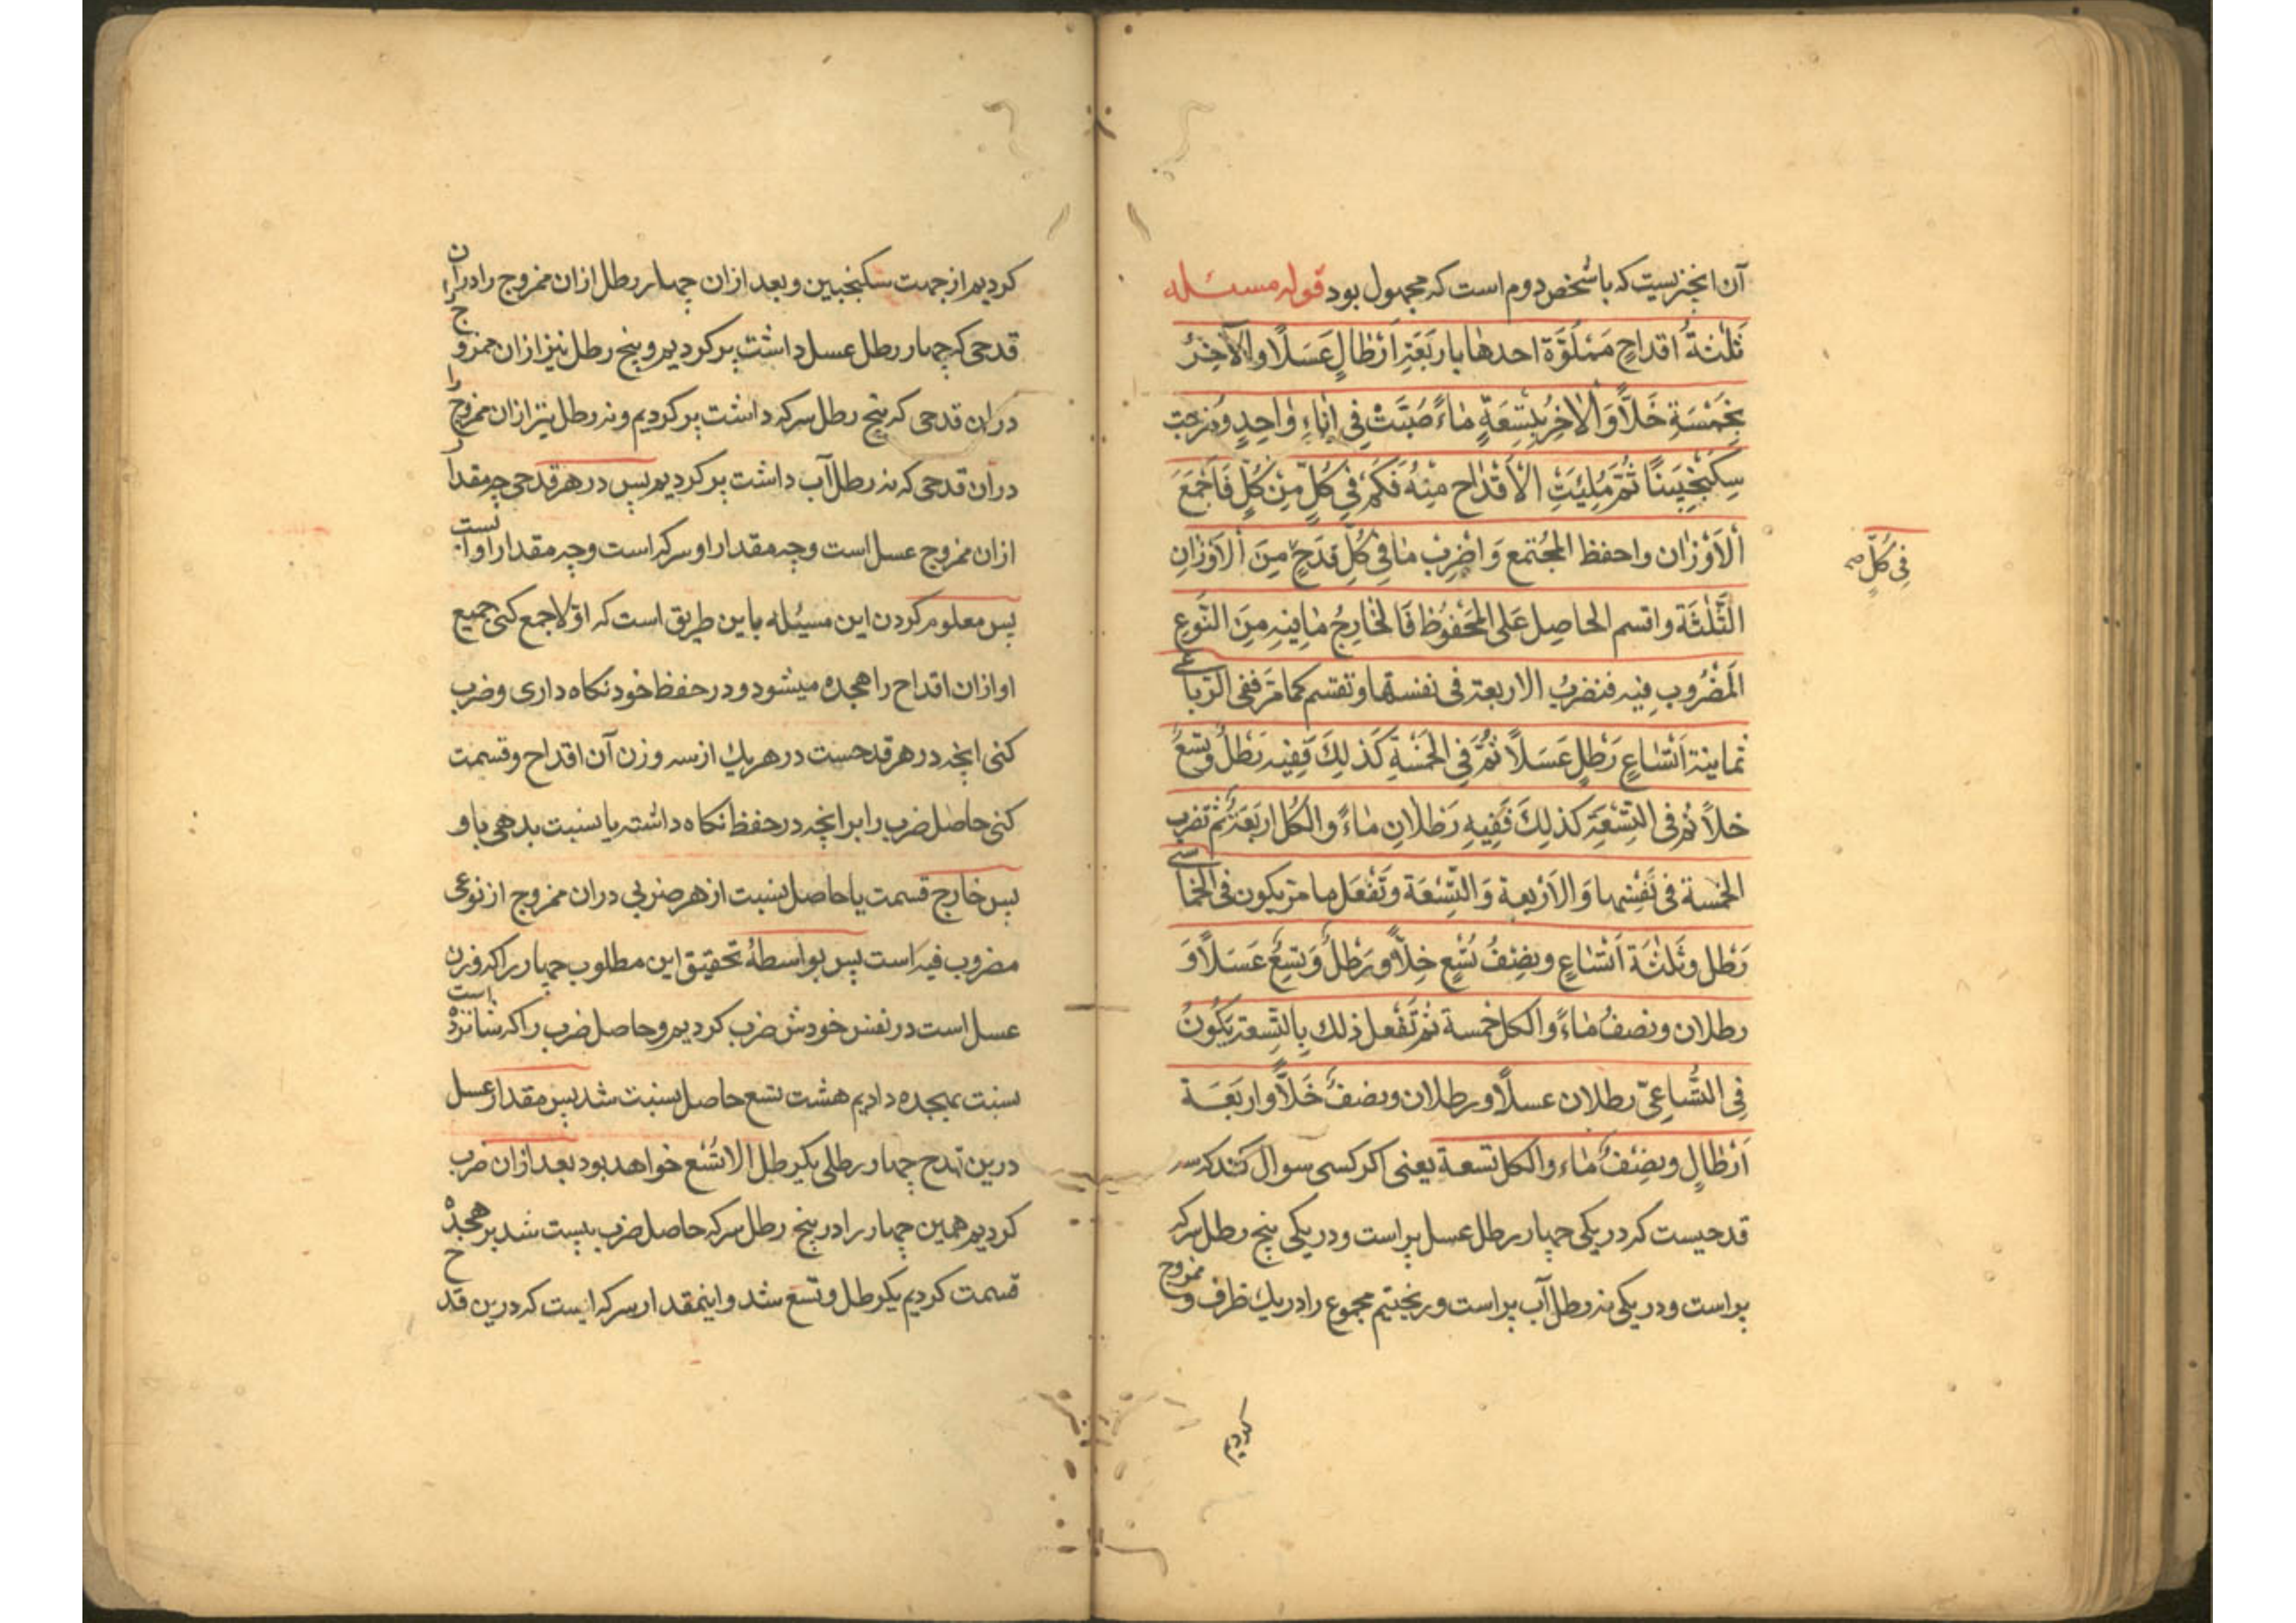 آن انچیزیست که باشخص دوم است که مجهول بود قوله مسئله
ثَلٰثةُ اقداحٍ مَمْلُوَّة احدها باربَعَةِ اَرْطالٍ عَسَلًا والآخِرُ
بخَمْسَةٍ خَلًّا وَالاٰخِرُ بِتِسعَةٍ مٰاءً صُبَّتْ فی اِناءٍ وٰاحِدٍ ومُزِجَت
سِکَنْجَبِینًا ثُمَّ مُلِئَتِ الاَقْدٰاح مِنْهُ فَکَمْ فی کُلٍّ مِنْ کُلٍّ فَاجْمَعْ
اَلاَوْزٰان واحفظ المُجْتمع وَاضْرِبْ مٰا فِی کُلِّ قَدَحٍ مِنَ اْلاَوْزٰانِ
فِی کُلٍّ صح
الثَّلٰثَة واقسم الحاصِل عَلی المَحْفُوظ فَالخٰارِجُ مٰا فِیهِ مِنَ النَّوعِ
اَلمَضْرُوبِ فِیه فنضربُ الاربعة فی نفسها وتقسم کمامَرَّ ففی الرّباعی
ثمانیة اَتْسٰاعِ رَطْلٍ عَسَلًا ثُمَّ فِی الخَمْسَةِ کَذٰلِکَ فَفِیه رَطْلٌ وتسعٌ
خلّاً ثُم فی التِسْعَةِ کذلِکَ فَفِیهِ رَطْلٰانِ مٰاءً والکُل اربَعَةٌ ثم تَضرب
الخمسة فی نَفْسِها وَالاَرْبعة وَالتِّسْعَة وتَفْعَل مامَرّ یکون فی الخماسی
رَطل وثَلٰثَة اَتْسٰاعٍ ونِصْفُ تُسْعٍ خلًّا ورَطْلٌ وَتِسعٌ عَسَلًا وَ
رطلان ونصفُ مٰاءً والکل خمسة ثم تَفْعل ذلك بِالتِّسعة یَکُونُ
فِی التُّساعِیّ رطلان عسلًا ورطلان ونصفٌ خَلًّا واربَعَة
اَرْطٰالٍ ونِصْفٌ مٰاء والکل تسعة یعنی اکر کسی سوال کند که سه
قدحیست که در یکی چهار رطل عسل پر است ودر یکی پنج رطل سرکه
پر است ودر یکی نه رطل آب پر است وریختیم مجموع را دریك ظرف و ممزوج
کردیم
کردیم از جهت سکنجبین وبعد ازان چهار رطل ازان ممزوج را دران
قدحی که چهار رطل عسل داشت پر کردیم وپنج رطل نیز ازان ممزوج را
دران قدحی که پنج رطل سرکه داشت پر کردیم ونه رطل نیز ازان ممزوج را
درآن قدحی که نه رطل آب داشت پر کردیم پس در هر قدحی چه مقدار
ازان ممزوج عسل است وچه مقدار او سرکه است وچه مقدار او آبست
پس معلوم کردن این مسئله باین طریق است که اوّلا جمع کنی جمیع
اوازان اقداح را هجده میشود ودر حفظ خود نکاه داری وضرب
کنی انچه در هر قدحست در هریك از سه وزن آن اقداح وقسمت
کنی حاصل ضرب را بر انچه در حفظ نکاه داشته یا نسبت بدهی باو
پس خارج قسمت یا حاصل نسبت از هر ضربی دران ممزوج از نوعی
مضروب فیه است پس بواسطهٔ تحقیق این مطلوب چهار را که وزن
عسل است در نفس خودش ضرب کردیم وحاصل ضرب را که شانزده است
نسبت بهجده دادیم هشت تسع حاصل نسبت شد پس مقدار عسل
درین قدح چهار رطلی یکرطل الا تُسْع خواهد بود بعد ازان ضرب
کردیم همین چهار را در پنج رطل سرکه حاصل ضرب بیست شد بر هجده
قسمت کردیم یکرطل وتسع شد واینمقدار سرکه ایست که درین قدح